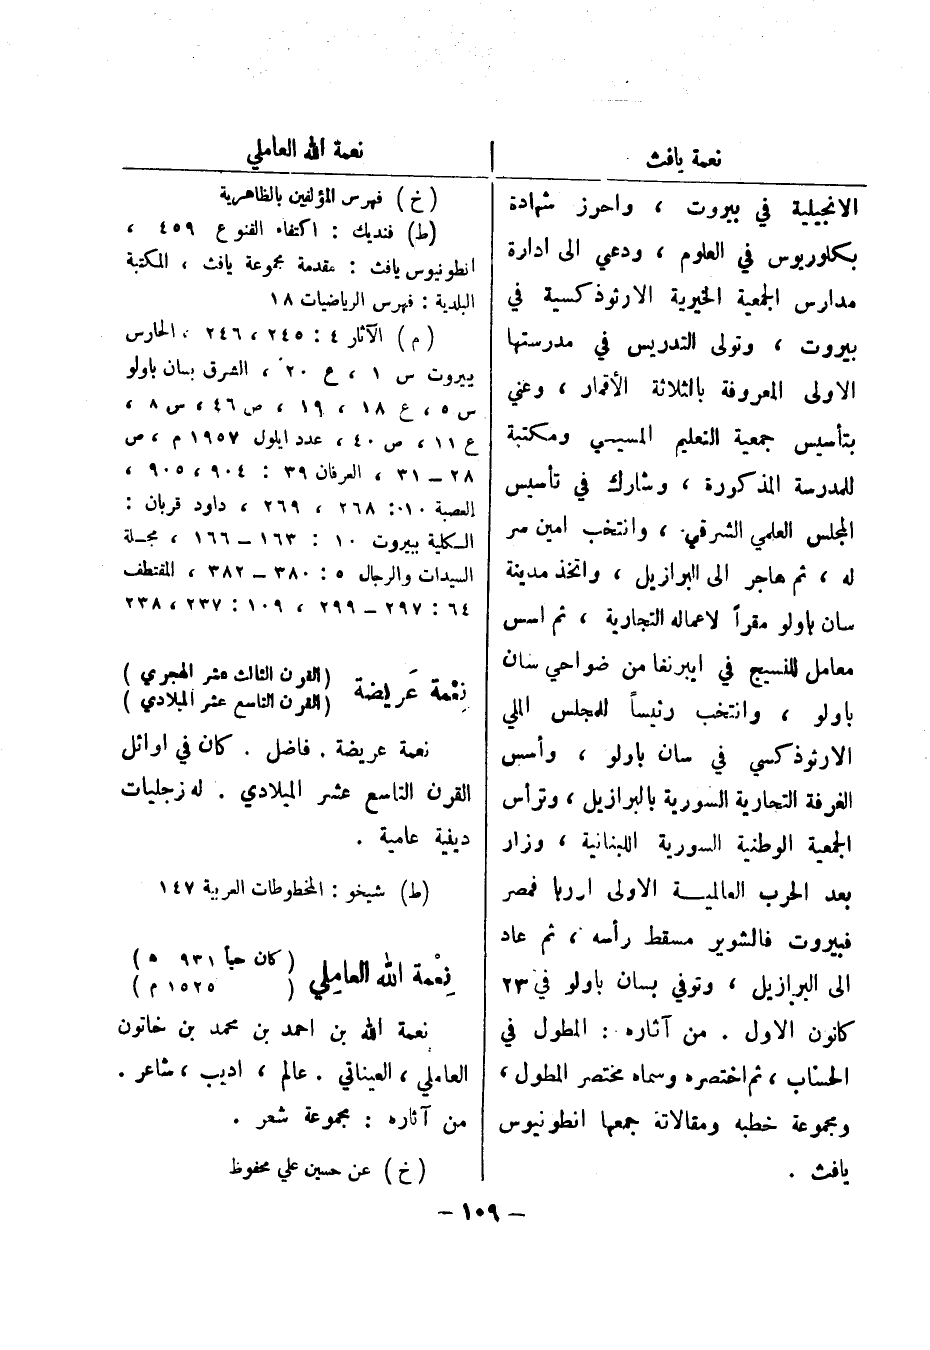 نعمة يافث
نعمة الله العاملي
الانجيلية في بيروت ، واحرز شهادة
بكلوريوس في العلوم ، ودعي الى ادارة
مدارس الجمعية الخيرية الارثوذكسية في
بيروت ، وتولى التدريس في مدرستها
الاولى المعروفة بالثلاثة الأقمار ، وعني
بتأسيس جمعية التعليم المسيحي ومكتبة
للمدرسة المذكورة ، وشارك في تأسيس
المجلس العلمي الشرقي ، وانتخب امين سر
له ، ثم هاجر الى البرازيل ، واتخذ مدينة
سان باولو مقراً لاعماله التجارية ، ثم اسس
معامل للنسيج في ايبرنغا من ضواحي سان
باولو ، وانتخب رئيساً للمجلس الملي
الارثوذكسي في سان باولو ، وأسس
الغرفة التجارية السورية بالبرازيل ، وترأس
الجمعية الوطنية السورية اللبنانية ، وزار
بعد الحرب العالميـــة الاولى اربا فمصر
فبيروت فالشوير مسقط رأسه ، ثم عاد
الى البرازيل ، وتوفي بسان باولو في ٢٣
كانون الاول . من آثاره : المطول في
الحساب ، ثم اختصره وسماه مختصر المطول ،
ومجموعة خطبه ومقالاتة جمعها انطونيوس
يافث .
(خ) فهرس المؤلفين بالظاهرية
(ط) فنديك : اكتفاء القنوع ٤٥٩ ،
انطونيوس يافث : مقدمة مجموعة يافث ، المكتبة
البلدية : فهرس الرياضيات ١٨
(م) الآثار ٤ : ٢٤٥ ، ٢٤٦ ، الحارس
بيروت س ١ ، ع ٢٠ ، الشرق بسان باولو
س ٥ ، ع ١٨ ، ١٩ ، ص ٤٦ ، س ٨ ،
ع ١١ ، ص ٤٠ ، عدد ايلول ١٩٥٧ م ، ص
٢٨ – ٣١ ، العرفان ٣٩ : ٩٠٤ ، ٩٠٥ ،
العصبة ١٠ : ٢٦٨ ، ٢٦٩ ، داود قربان :
الكلية ببيروت ١٠ : ١٦٣ – ١٦٦ ، مجـلة
السيدات والرجال ٥ : ٣٨٠ – ٣٨٢ ، المقتطف
٦٤ : ٢٩٧ – ٢٩٩ ، ١٠٩ : ٢٣٧ ، ٢٣٨
نِعْمة عَريضة (القرن الثالث عشر الهجري)
(القرن التاسع عشر الميلادي)
نعمة عريضة . فاضل . كان في اوائل
القرن التاسع عشر الميلادي . له زجليات
ديفية عامية .
(ط) شيخو : المخطوطات العربية ١٤٧
نِعْمة الله العامِلي (كان حياً ٩٣١ ه)
(١٥٢٥ م)
نعمة الله بن احمد بن محمد بن خاتون
العاملي ، العيناثي . عالم ، اديب ، شاعر .
من آثاره : مجموعة شعر .
(خ) عن حسين علي محفوظ
– ١٠٩ –